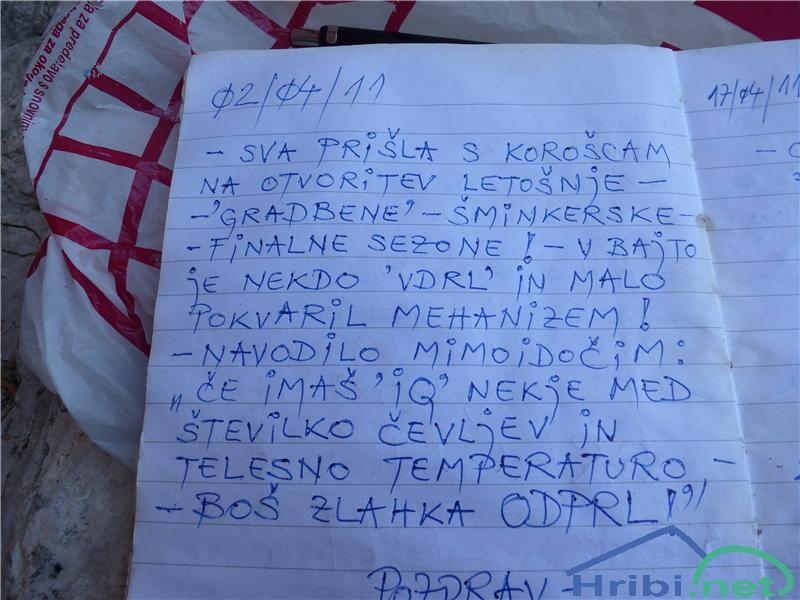 02/04/11
- SVA PRIŠLA S KOROŠCAM
NA OTVORITEV LETOŠNJE -
- 'GRADBENE' - ŠMINKERSKE -
- FINALNE SEZONE! - V BAJTO
JE NEKDO 'VDRL' IN MALO
POKVARIL MEHANIZEM!
- NAVODILO MIMOIDOČIM:
„ČE IMAŠ 'IQ' NEKJE MED
ŠTEVILKO ČEVLJEV IN
TELESNO TEMPERATURO -
- BOŠ ZLAHKA ODPRL!"
POZDRAV -
17/04/11
za predelavo s snovnim
Hribi.net